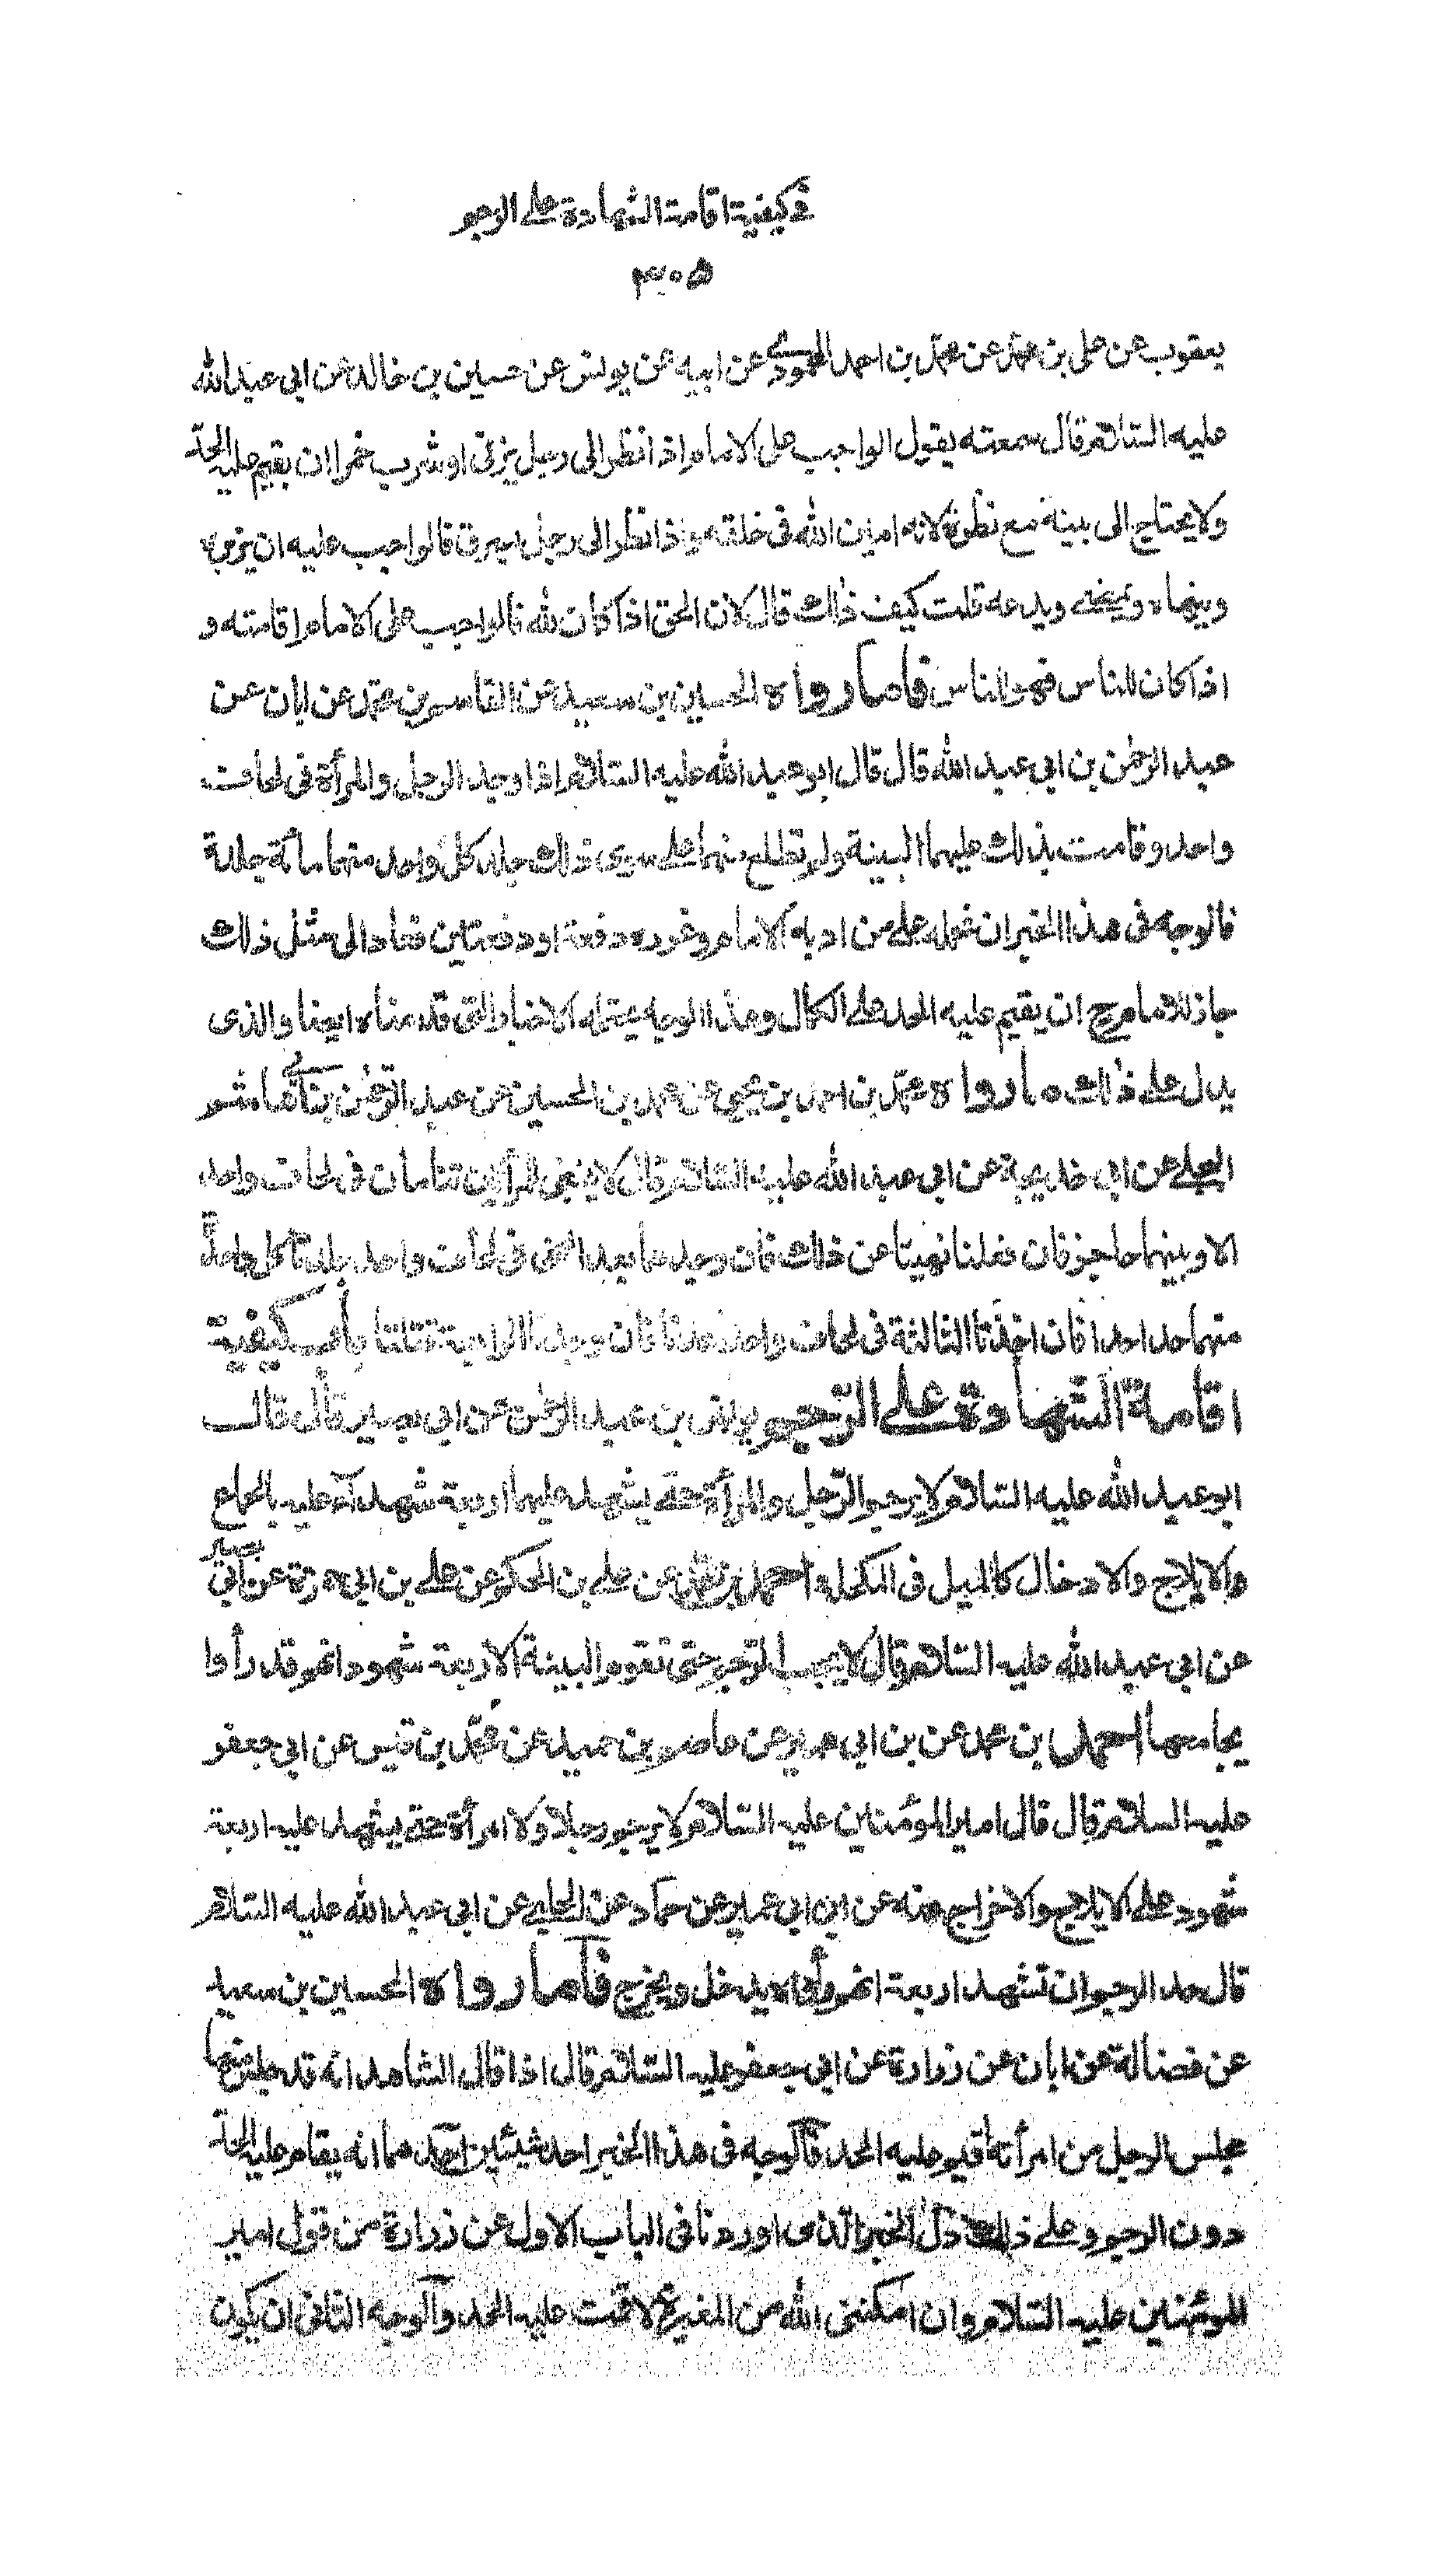 في كيفية اقامة الشهادة على الرجم
٣٠٥
يعقوب عن علي بن محمد عن محمد بن احمد المحمودي عن ابيه عن يونس عن حسين بن خالد عن ابي عبد الله
عليه السلام قال سمعته يقول الواجب على الامام اذا نظر الى رجل يزني او شرب خمرا ان يقيم عليه الحد
ولا يحتاج الى بينة مع نظره لانه امين الله في خلقه واذا نظر الى رجل يسرق فالواجب عليه ان يزبره
وينهاه ويمضي ويدعه قلت كيف ذلك قال لان الحق اذا كان لله فالواجب على الامام اقامته و
اذا كان للناس فهو للناس فاما رواه الحسين بن سعيد عن القاسم بن محمد عن ابان عن
عبد الرحمن بن ابي عبد الله قال قال ابو عبد الله عليه السلام اذا وجد الرجل والمرأة في لحاف
واحد وقامت بذلك عليهما البينة ولم تطلع منهما على سوى ذلك جلد كل واحد منهما مائة جلدة
فالوجه في هذا الخبر ان نحمله على من ادبه الامام وعزره دفعة او دفعتين فعاد الى مثل ذلك
جاز للامام ح ان يقيم عليه الحد على الكمال وهذا الوجه يحتمله الاخبار التي قدمناه ايضا والذي
يدل على ذلك ما رواه محمد بن احمد بن يحيى عن محمد بن الحسين عن عبد الرحمن بن ابي هاشم
البجلي عن ابي خديجة عن ابي عبد الله عليه السلام قال لا ينبغي لامرأتين تنامان في لحاف واحد
الا وبينهما حاجز فان فعلتا نهيتا عن ذلك فان وجدهما بعد النهي في لحاف واحد جلدتا كل واحدة
منهما حدا حدا فان اخذتا الثالثة في لحاف واحد حدتا فان وجدتا الرابعة قتلتا باب كيفية
اقامة الشهادة على الرجم يونس بن عبد الرحمن عن ابي بصير قال قال
ابو عبد الله عليه السلام لا يرجم الرجل والمرأة حتى يشهد عليهما اربعة شهداء عليه بالجماع
والايلاج والادخال كالميل في المكحلة احمد بن محمد عن علي بن الحكم عن علي بن ابي حمزة عن ابي بصير
عن ابي عبد الله عليه السلام قال لا يجب الرجم حتى تقوم البينة الاربعة شهود انهم قد رأوا
يجامعها احمد بن محمد عن بن ابي عمير عن عاصم بن حميد عن محمد بن قيس عن ابي جعفر
عليه السلام قال قال امير المؤمنين عليه السلام لا يرجم رجلا ولا امرأة حتى يشهد عليه اربعة
شهود على الايلاج والاخراج عنه عن ابن ابي عمير عن حماد عن الحلبي عن ابي عبد الله عليه السلام
قال حد الرجم ان تشهد اربعة انهم رأوه يدخل ويخرج فاما رواه الحسين بن سعيد
عن فضالة عن ابان عن زرارة عن ابي جعفر عليه السلام قال اذا قال الشاهد انه قد جلس منها
مجلس الرجل من امرأته اقيم عليه الحد فالوجه في هذا الخبر احد شيئين احدهما انه يقام عليه الحد
دون الرجم وعلى ذلك دل الخبر الذي اوردنا في الباب الاول عن زرارة من قول امير
المؤمنين عليه السلام وان امكنني الله من المغيرة لاقمت عليه الحد والوجه الثاني ان يكون